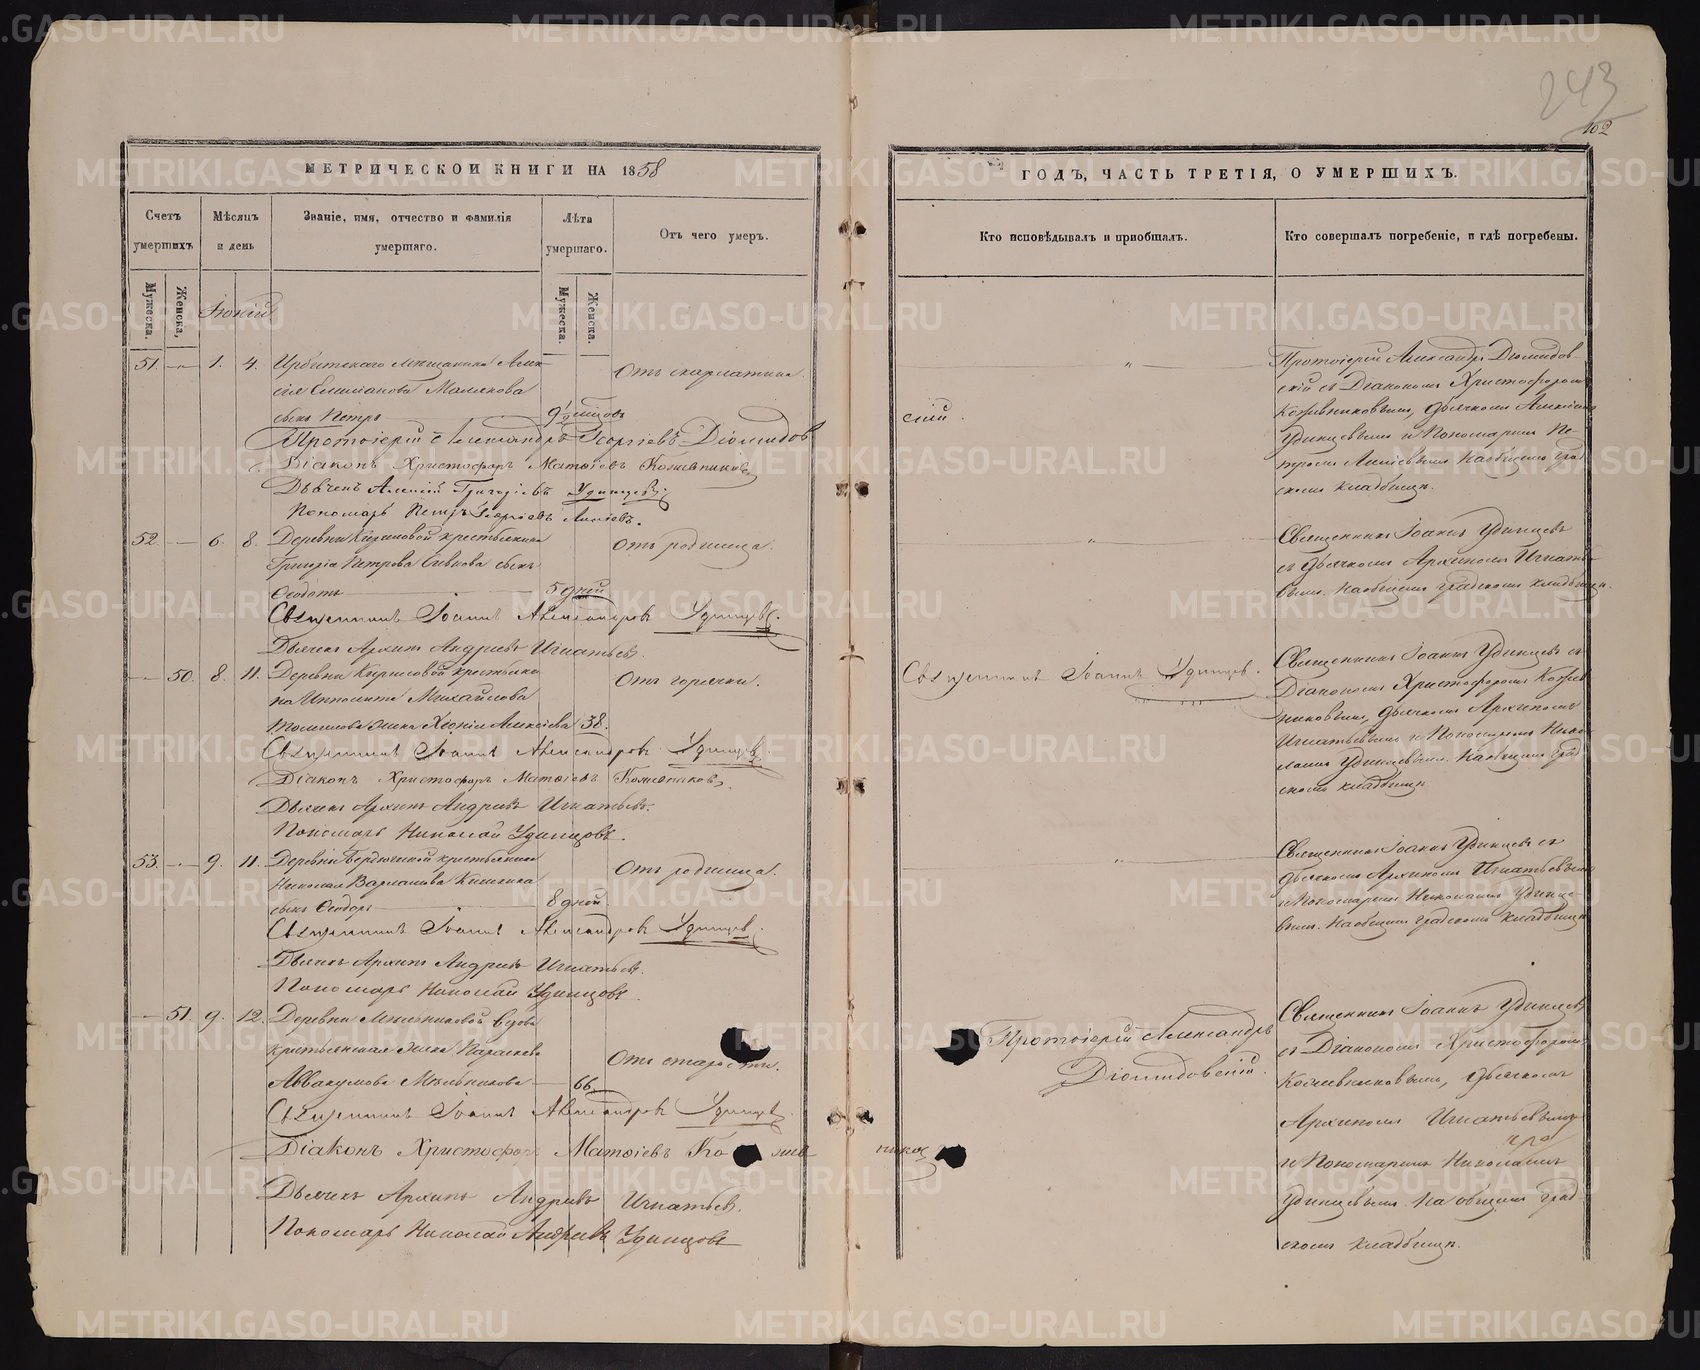 243
102
МЕТРИЧЕСКОЙ КНИГИ НА 1858
Счетъ умершихъ
Мужеска.
Женска.
Мѣсяцъ и день
Званіе, имя, отчество и фамилія умершаго.
Лѣта умершаго.
Мужеска.
Женска.
Отъ чего умеръ.
Іюній
51. 1. 4. Ирбитскаго мѣщанина Алек-
сія
Малкова
сынъ Петръ 9½ мѣсяцовъ
Отъ скарлатины.
Протоіерей Александръ Георгіевъ Діомидов
Діаконъ Христофоръ Матѳіевъ Кожевниковъ
Дьячекъ Алексій Григоріевъ Удинцевъ
Пономарь Петръ Георгіевъ
52. 6. 8. Деревни Кириловой крестьянина
Григорія Петрова сынъ
Ѳеодотъ 5 дней
Отъ родимца.
Священникъ Іоаннъ Александровъ Удинцевъ.
Дьячекъ Архипъ Андреевъ Игнатьевъ.
50. 8. 11. Деревни Кириловой крестьяни-
на Ипполита Михайлова
жена Хіонія Алексіева 38.
Отъ горячки.
Священникъ Іоаннъ Александровъ Удинцевъ
Діаконъ Христофоръ Матѳіевъ Кожевниковъ.
Дьячекъ Архипъ Андреевъ Игнатьевъ.
Пономарь Николай Удинцовъ.
53. 9. 11. Деревни крестьянина
Николая Варламова
сынъ Ѳеодоръ 8 дней
Отъ родимца.
Священникъ Іоаннъ Александровъ Удинцев.
Дьячекъ Архипъ Андреевъ Игнатьевъ.
Пономарь Николай Удинцовъ.
51. 9. 12. Деревни Мельниковой вдова
крестьянская жена Параскева
Аввакумова Мельникова 66.
Отъ старости.
Священникъ Іоаннъ Александровъ Удинцев.
Діаконъ Христофоръ Матѳіевъ Кожевников
Дьячекъ Архипъ Андреевъ Игнатьевъ.
Пономарь Николай Андреевъ Удинцовъ
ГОДЪ, ЧАСТЬ ТРЕТІЯ, О УМЕРШИХЪ.
Кто исповѣдывалъ и пріобщалъ.
Кто совершалъ погребеніе, и гдѣ погребены.
скій.
Протоіерей Александръ Діомидов-
скій съ Діакономъ Христофоромъ
Кожевниковымъ, дьячкомъ Алексіемъ
Удинцевымъ и Пономаремъ Пе-
тромъ на общемъ град-
скомъ кладбищѣ.
Священникъ Іоаннъ Удинцевъ
съ дьячкомъ Архипомъ Игнатье-
вымъ. На общемъ градскомъ кладбищѣ.
Священникъ Іоаннъ Удинцев.
Священникъ Іоаннъ Удинцевъ съ
Діакономъ Христофоромъ Кожев-
никовымъ, дьячкомъ Архипомъ
Игнатьевымъ и Пономаремъ Нико-
лаемъ Удинцевымъ. На общемъ град-
скомъ кладбищѣ.
Священникъ Іоаннъ Удинцевъ съ
дьячкомъ Архипомъ Игнатьевымъ
и Пономаремъ Николаемъ Удинце-
вымъ. На общемъ градскомъ кладбищѣ
Протоіерей Александръ
Діомидовскій.
Священникъ Іоаннъ Удинцевъ
съ Діакономъ Христофоромъ
Кожевниковымъ, дьячкомъ
Архипомъ Игнатьевымъ
и Пономаремъ Николаемъ
Удинцевымъ. На общемъ град-
скомъ кладбищѣ.
METRIKI.GASO-URAL.RU